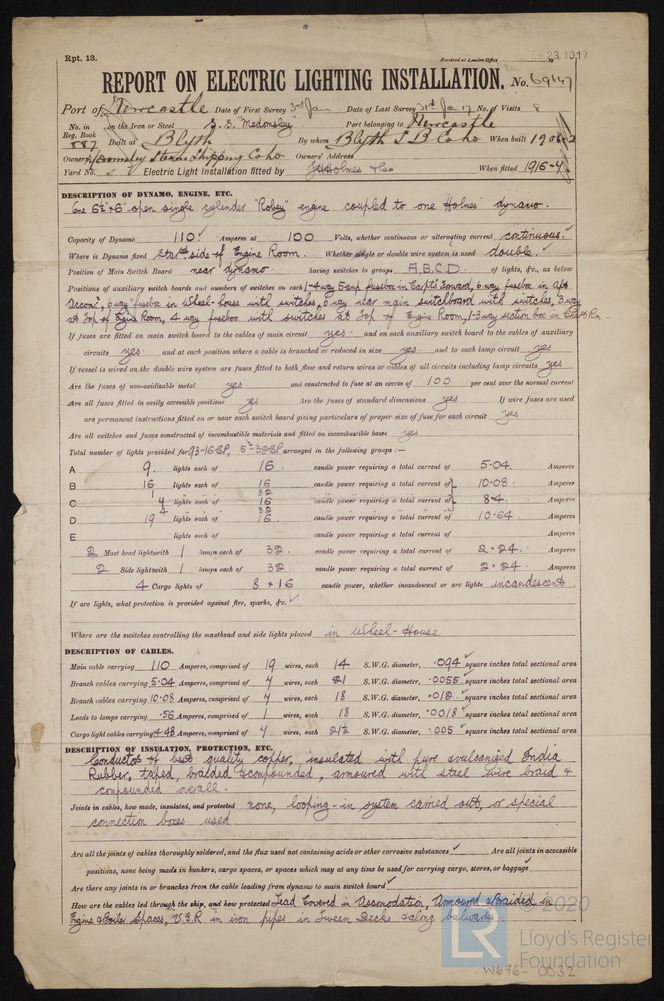 Rpt. 13.
Received at London Office
23. 1917
REPORT ON ELECTRIC LIGHTING INSTALLATION. No. 69647
Port of Newcastle Date of First Survey 3rd Jan Date of Last Survey 31st Jan 17 No. of Visits 8
No. in on the Iron or Steel S.S. "Medomsley" Port belonging to Newcastle
Reg. Book 887 Built at Blyth By whom Blyth S B Co Ld When built 1906-2
Owners Steam Shipping Co Ld Owners' Address
Yard No. Electric Light Installation fitted by J H Holmes & Co When fitted 1916-4
DESCRIPTION OF DYNAMO, ENGINE, ETC.
One 6½" x 6" open single cylinder "Robey" engine coupled to one Holmes dynamo.
Capacity of Dynamo 110 Amperes at 100 Volts, whether continuous or alternating current continuous.
Where is Dynamo fixed Starbd side of Engine Room. Whether single or double wire system is used double.
Position of Main Switch Board near dynamo having switches to groups A, B, C, D. of lights, &c., as below
Positions of auxiliary switch boards and numbers of switches on each 1-4 way 5 amp fusebox in Forward, 6 way fusebox in aft
Accom, 6 way fusebox in Wheel-house with switches, 6 way near main switchboard with switches, 3 way
at top of Engine Room, 4 way fusebox with switches at top of Engine Room, 1-3 way section box in
If fuses are fitted on main switch board to the cables of main circuit yes and on each auxiliary switch board to the cables of auxiliary
circuits yes and at each position where a cable is branched or reduced in size yes and to each lamp circuit yes
If vessel is wired on the double wire system are fuses fitted to both flow and return wires or cables of all circuits including lamp circuits yes
Are the fuses of non-oxidizable metal yes and constructed to fuse at an excess of 100 per cent over the normal current
Are all fuses fitted in easily accessible positions yes Are the fuses of standard dimensions yes If wire fuses are used
are permanent instructions fitted on or near each switch board giving particulars of proper size of fuse for each circuit yes
Are all switches and fuses constructed of incombustible materials and fitted on incombustible bases yes
Total number of lights provided for 93-16CP, 5-32CP arranged in the following groups :—
A 9. lights each of 16. candle power requiring a total current of 5.04. Amperes
B 16 lights each of 16 candle power requiring a total current of 10.08. Amperes
1 32
C 4 lights each of 16 candle power requiring a total current of 8.4. Amperes
4 32
D 19 lights each of 16. candle power requiring a total current of 10.64 Amperes
E lights each of candle power requiring a total current of Amperes
2 Mast head light with 1 lamps each of 32. candle power requiring a total current of 2.24. Amperes
2 Side light with 1 lamps each of 32 candle power requiring a total current of 2.24. Amperes
4 Cargo lights of 8 x 16 candle power, whether incandescent or arc lights incandescent.
If arc lights, what protection is provided against fire, sparks, &c.
Where are the switches controlling the masthead and side lights placed in Wheel-House
DESCRIPTION OF CABLES.
Main cable carrying 110 Amperes, comprised of 19 wires, each 14 S.W.G. diameter, .094 square inches total sectional area
Branch cables carrying 5.04 Amperes, comprised of 7 wires, each 21 S.W.G. diameter, .0055 square inches total sectional area
Branch cables carrying 10.08 Amperes, comprised of 7 wires, each 18 S.W.G. diameter, .018 square inches total sectional area
Leads to lamps carrying .56 Amperes, comprised of 1 wires, each 18 S.W.G. diameter, .0018 square inches total sectional area
Cargo light cables carrying 4.48 Amperes, comprised of 7 wires, each 21½ S.W.G. diameter, .005 square inches total sectional area
DESCRIPTION OF INSULATION, PROTECTION, ETC.
Conductor of best quality copper, insulated with pure & vulcanized India
Rubber, taped, braided & compounded, armoured with steel wire braid &
compounded overall.
Joints in cables, how made, insulated, and protected none, looping-in system carried out, or special
connection boxes used.
Are all the joints of cables thoroughly soldered, and the flux used not containing acids or other corrosive substances Are all joints in accessible
positions, none being made in bunkers, cargo spaces, or spaces which may at any time be used for carrying cargo, stores, or baggage
Are there any joints in or branches from the cable leading from dynamo to main switch board
How are the cables led through the ship, and how protected Lead Covered in Accomodation, Armoured & Braided in
Engine & Boiler Spaces, V.I.R in iron pipes in Tween Decks & along bulwarks
© 2020
LR
Lloyd's Register
Foundation
W676-0032